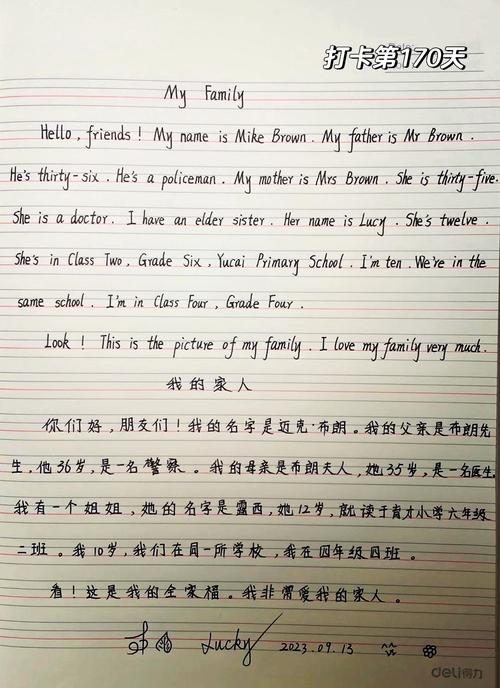 打卡第170天
My Family
Hello, friends! My name is Mike Brown. My father is Mr Brown.
He's thirty-six. He's a policeman. My mother is Mrs Brown. She is thirty-five.
She is a doctor. I have an elder sister. Her name is Lucy. She's twelve.
She's in Class Two, Grade Six, Yucai Primary School. I'm ten. We're in the
same school. I'm in Class Four, Grade Four.
Look! This is the picture of my family. I love my family very much.
我的家人
你们好,朋友们!我的名字是迈克·布朗。我的父亲是布朗先
生,他36岁,是一名警察。我的母亲是布朗夫人,她35岁,是一名医生。
我有一个姐姐,她的名字是露西,她12岁,就读于育才小学六年级
二班。我10岁,我们在同一所学校,我在四年级四班。
看!这是我的全家福。我非常爱我的家人。
Lucky 2023.09.13
deli得力